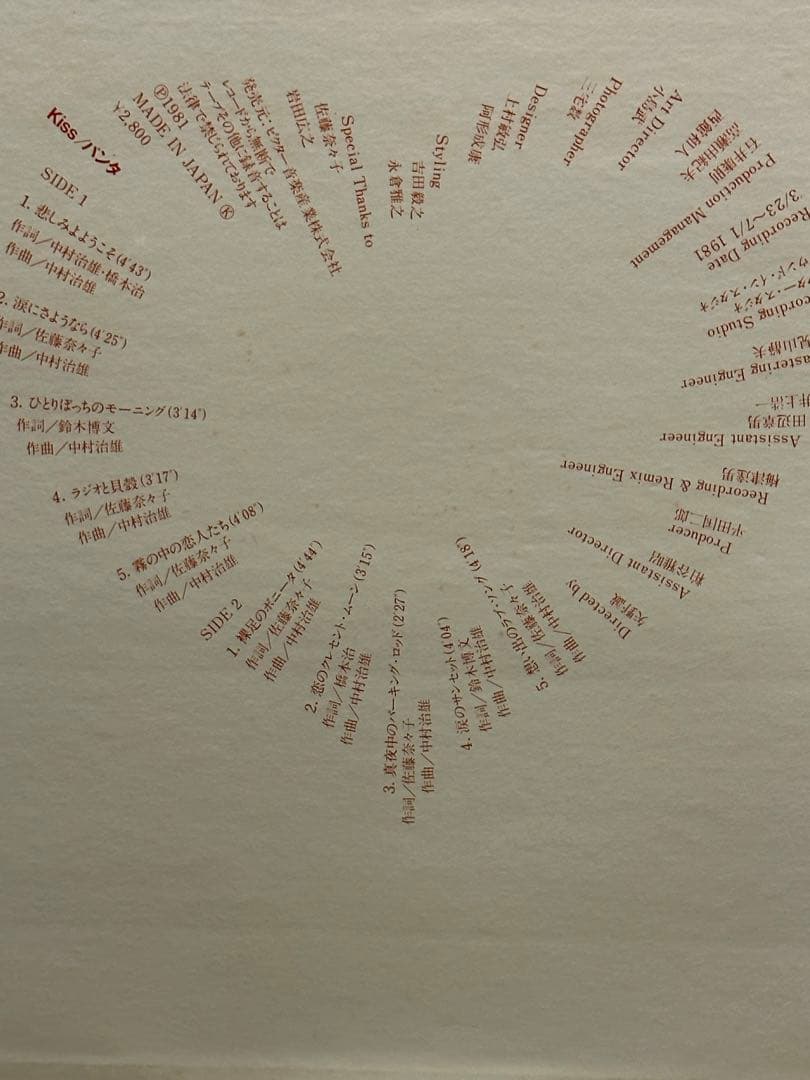 Kiss/パンタ
SIDE 1
1. 悲しみよようこそ(4'43")
作詞/中村治雄・橋本治
作曲/中村治雄
2. 涙にさようなら(4'25")
作詞/佐藤奈々子
作曲/中村治雄
3. ひとりぼっちのモーニング(3'14")
作詞/鈴木博文
作曲/中村治雄
4. ラジオと貝殻(3'17")
作詞/佐藤奈々子
作曲/中村治雄
5. 霧の中の恋人たち(4'08")
作詞/佐藤奈々子
作曲/中村治雄
SIDE 2
1. 裸足のボニータ(4'44")
作詞/佐藤奈々子
作曲/中村治雄
2. 恋のクレセント・ムーン(3'15")
作詞/橋本治
作曲/中村治雄
3. 真夜中のパーキング・ロッド(2'27")
作詞/佐藤奈々子
作曲/中村治雄
4. 涙のサンセット(4'04")
作詞/鈴木博文
作曲/中村治雄
5. 想い出のラブ・ソング(4'18")
作詞/佐藤奈々子
作曲/中村治雄
Directed by
矢野誠
Assistant Director
粕谷雅昭
Producer
平田司二郎
Recording & Remix Engineer
梅津達男
Assistant Engineer
田辺章男
井上浩一
Mastering Engineer
Recording Studio
Recording Date
3/23〜7/1 1981
Production Management
石井康昭
高瀬由紀夫
四館和人
Art Director
小島武
Photographer
三宅毅
Designer
上村純弘
Styling
吉田毅之
永倉雅之
Special Thanks to
佐藤奈々子
岩田広之
発売元・ビクター音楽産業株式会社
レコードから無断で
テープその他に録音することは
法律で禁じられております
Ⓟ1981
MADE IN JAPAN Ⓚ
¥2,800